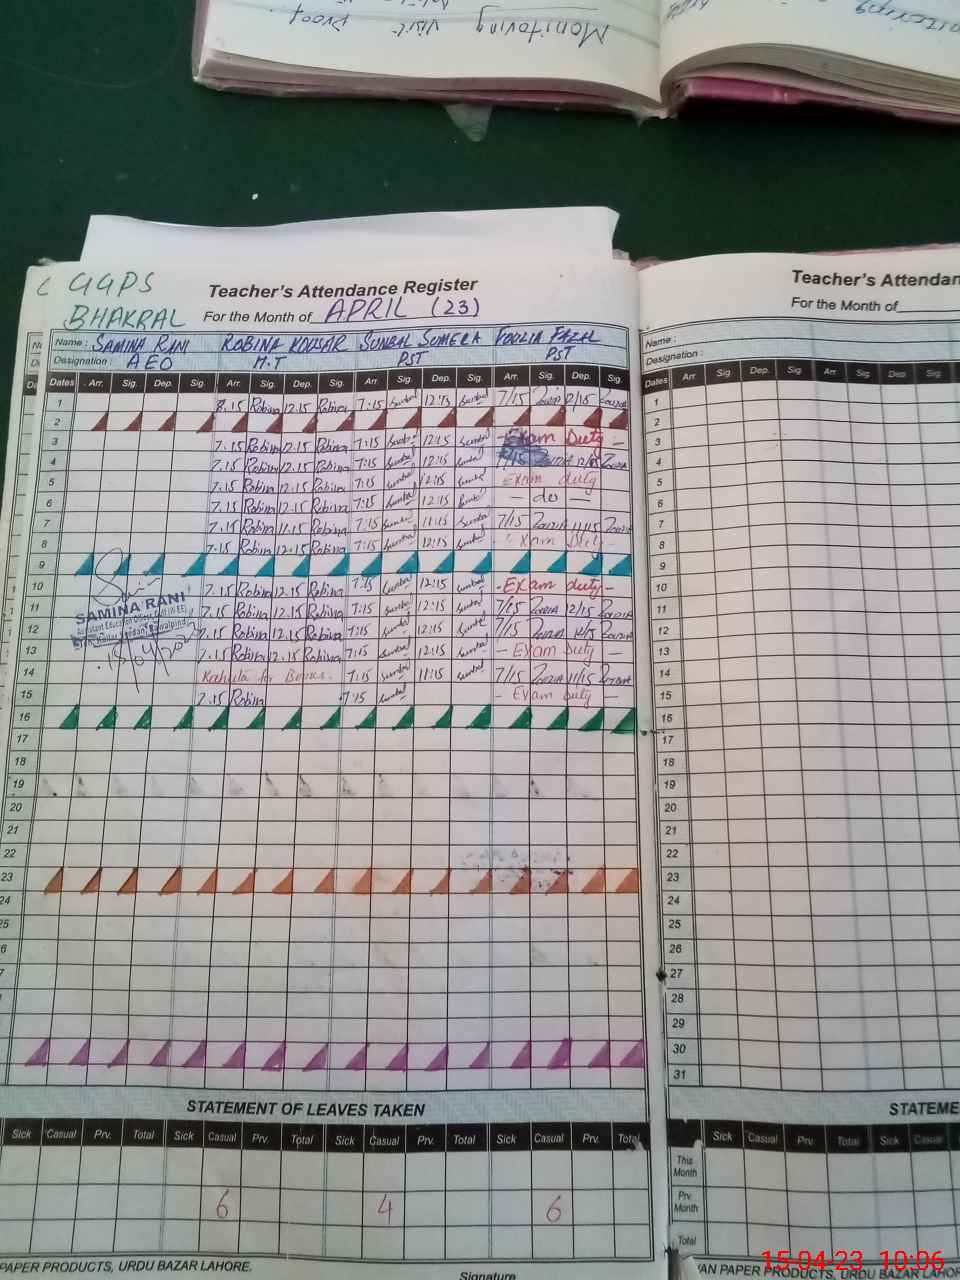 Monitoring Visit Proof
GGPS
BHAKRAL
Teacher's Attendance Register
For the Month of APRIL (23)
Name : SAMINA RANI ROBINA KOUSAR SUNBAL SUMERA FOUZIA FAZAL
Designation : AEO H.T PST PST
Dates Arr. Sig. Dep. Sig. Arr. Sig. Dep. Sig. Arr. Sig. Dep. Sig. Arr. Sig. Dep. Sig.
1 8.15 Robina 12.15 Robina 7:15 Sumbal 12:15 Sumbal 7/15 12/15
2
3 7.15 Robina 12.15 Robina 7:15 Sumbal 12:15 Sumbal - Exam Duty -
4 7.15 Robina 12.15 Robina 7:15 Sumbal 12:15 Sumbal 12/15
5 7.15 Robina 12.15 Robina 7:15 Sumbal 12:15 Sumbal Exam duty
6 7.15 Robina 12.15 Robina 7:15 Sumbal 12:15 Sumbal - do -
7 7.15 Robina 11.15 Robina 7:15 Sumbal 11:15 Sumbal 7/15 Fouzia 11/15 Fouzia
8 7.15 Robina 12.15 Robina 7:15 Sumbal 12:15 Sumbal - Exam Duty -
9
10 7.15 Robina 12.15 Robina 7:15 Sumbal 12:15 Sumbal - Exam duty -
11 7.15 Robina 12.15 Robina 7:15 Sumbal 12:15 Sumbal 7/15 Fouzia 12/15 Fouzia
12 7.15 Robina 12.15 Robina 7:15 Sumbal 12:15 Sumbal 7/15 Fouzia 12/15 Fouzia
13 7.15 Robina 12.15 Robina 7:15 Sumbal 12:15 Sumbal - Exam Duty -
14 Kahuta for Books. 7:15 Sumbal 11:15 Sumbal 7/15 Fouzia 11/15 Fouzia
15 7.15 Robina 7:15 Sumbal - Exam duty -
SAMINA RANI
Assistant Education Officer
Rawalpindi
15/04/2023
16
17
18
19
20
21
22
23
24
25
26
30
STATEMENT OF LEAVES TAKEN
Sick Casual Prv. Total Sick Casual Prv. Total Sick Casual Prv. Total Sick Casual Prv. Total
6 4 6
PAPER PRODUCTS, URDU BAZAR LAHORE.
Signature
Teacher's Attendan
For the Month of
Name :
Designation :
Dates Arr. Sig. Dep. Sig. Arr. Sig. Dep. Sig.
1
2
3
4
5
6
7
8
9
10
11
12
13
14
15
16
17
18
19
20
21
22
23
24
25
26
27
28
29
30
31
STATEME
Sick Casual Prv. Total Sick Casual
This Month
Prv. Month
Total
VAN PAPER PRODUCTS, URDU BAZAR LAHOR
15-04-23 10:06